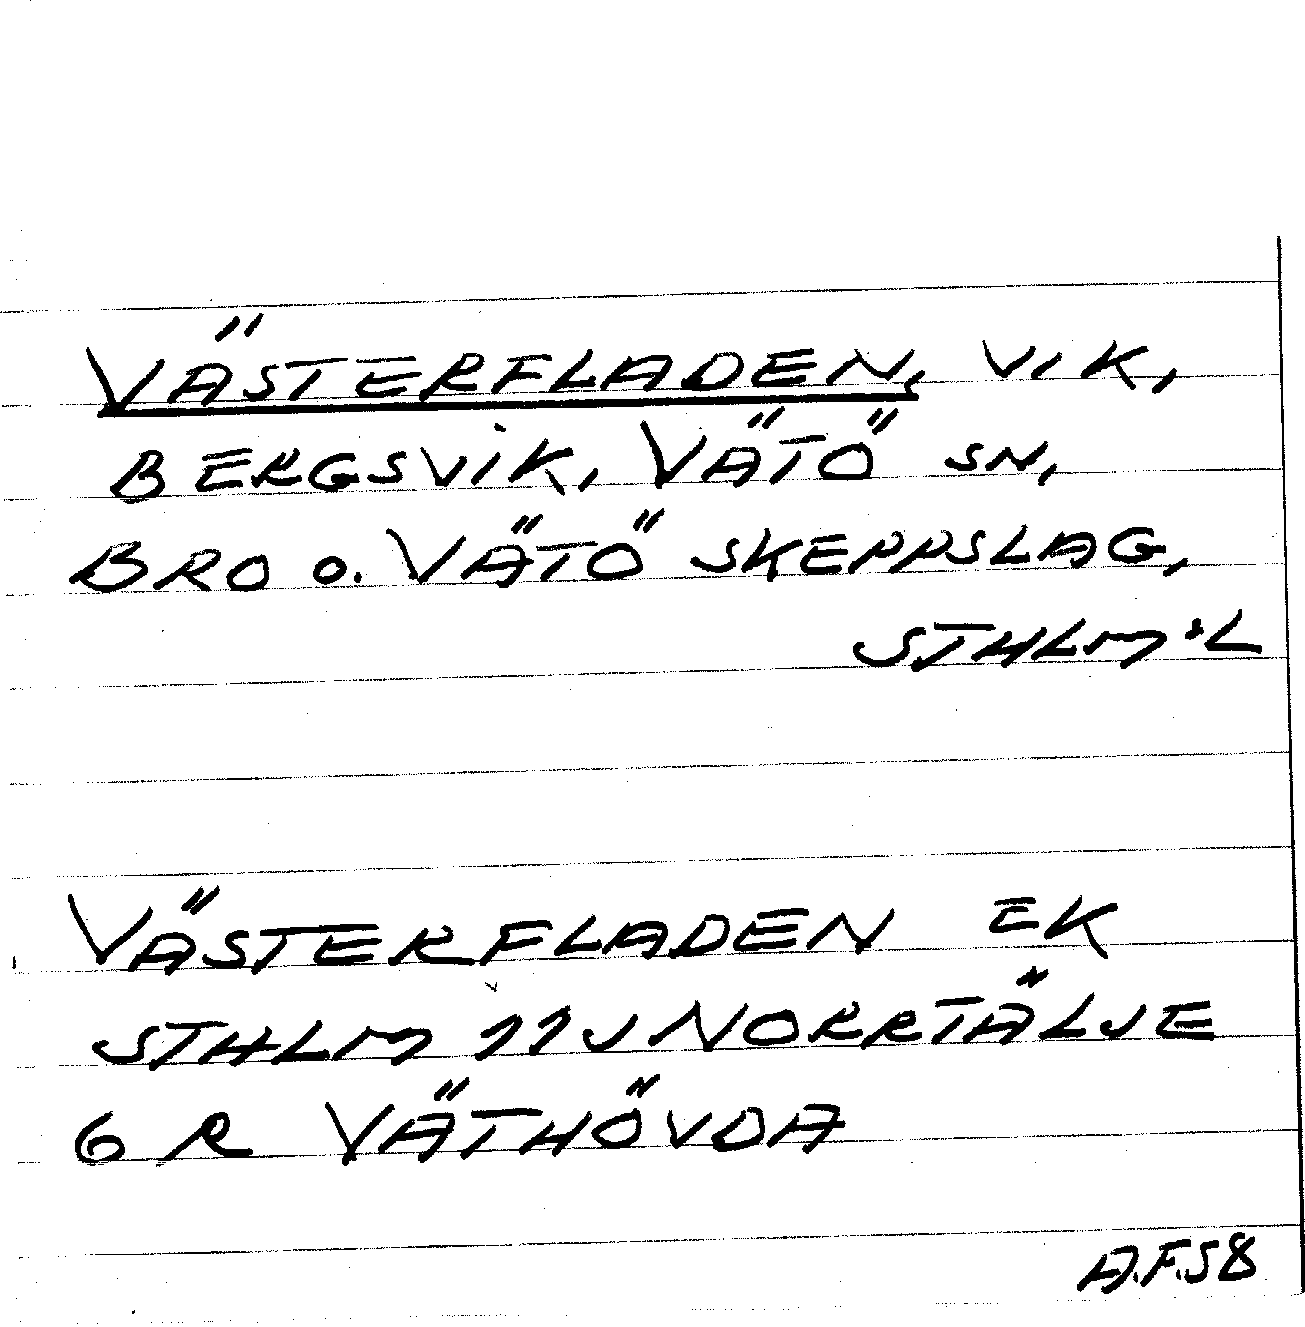 VÄSTERFLADEN, VIK,
BERGSVIK, VÄTÖ SN,
BRO O. VÄTÖ SKEPPSLAG,
STHLM:L
VÄSTERFLADEN EK
STHLM 11J NORRTÄLJE
6 R VÄTHÖVDA
A.F.58